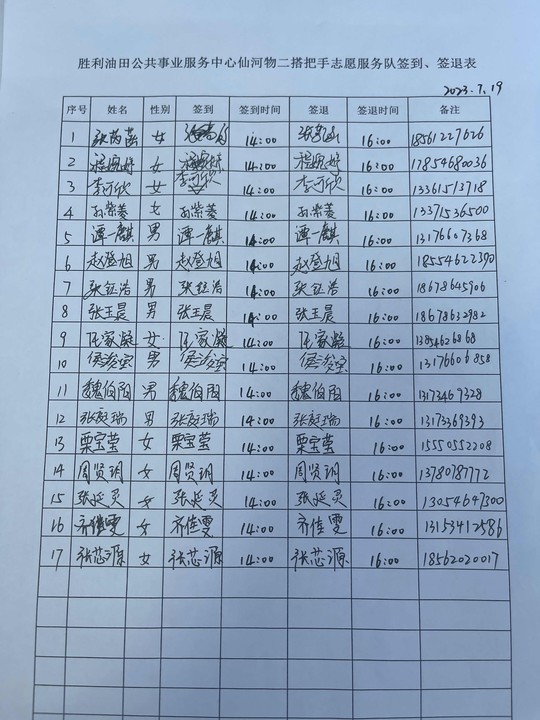 胜利油田公共事业服务中心仙河物二搭把手志愿服务队签到、签退表
2023.7.19
序号 姓名 性别 签到 签到时间 签退 签退时间 备注
1 张芮菡 女 14:00 16:00 18561227626
2 程媛婷 女 程媛婷 14:00 程媛婷 16:00 17854680036
3 李可欣 女 李可欣 14:00 李可欣 16:00 13361513718
4 孙紫菱 女 孙紫菱 14:00 孙紫菱 16:00 13371536500
5 谭一麒 男 谭一麒 14:00 谭一麒 16:00 13176607368
6 赵登旭 男 赵登旭 14:00 赵登旭 16:00 18554622390
7 张钰浩 男 张钰浩 14:00 张钰浩 16:00 18678645906
8 张王晨 男 张王晨 14:00 张王晨 16:00 18678632982
9 任家凝 女 任家凝 14:00 任家凝 16:00 13854626868
10 男 14:00 16:00 13176606858
11 魏伯阳 男 魏伯阳 14:00 魏伯阳 16:00 13173469328
12 张庭瑞 男 张庭瑞 14:00 张庭瑞 16:00 13173369393
13 栗宝莹 女 栗宝莹 14:00 栗宝莹 16:00 15550552208
14 周贤玥 女 周贤玥 14:00 周贤玥 16:00 13780787772
15 张延灵 女 张延灵 14:00 张延灵 16:00 13054647300
16 齐佳雯 女 齐佳雯 14:00 齐佳雯 16:00 13153412586
17 张芯源 女 张芯源 14:00 张芯源 16:00 18562020017